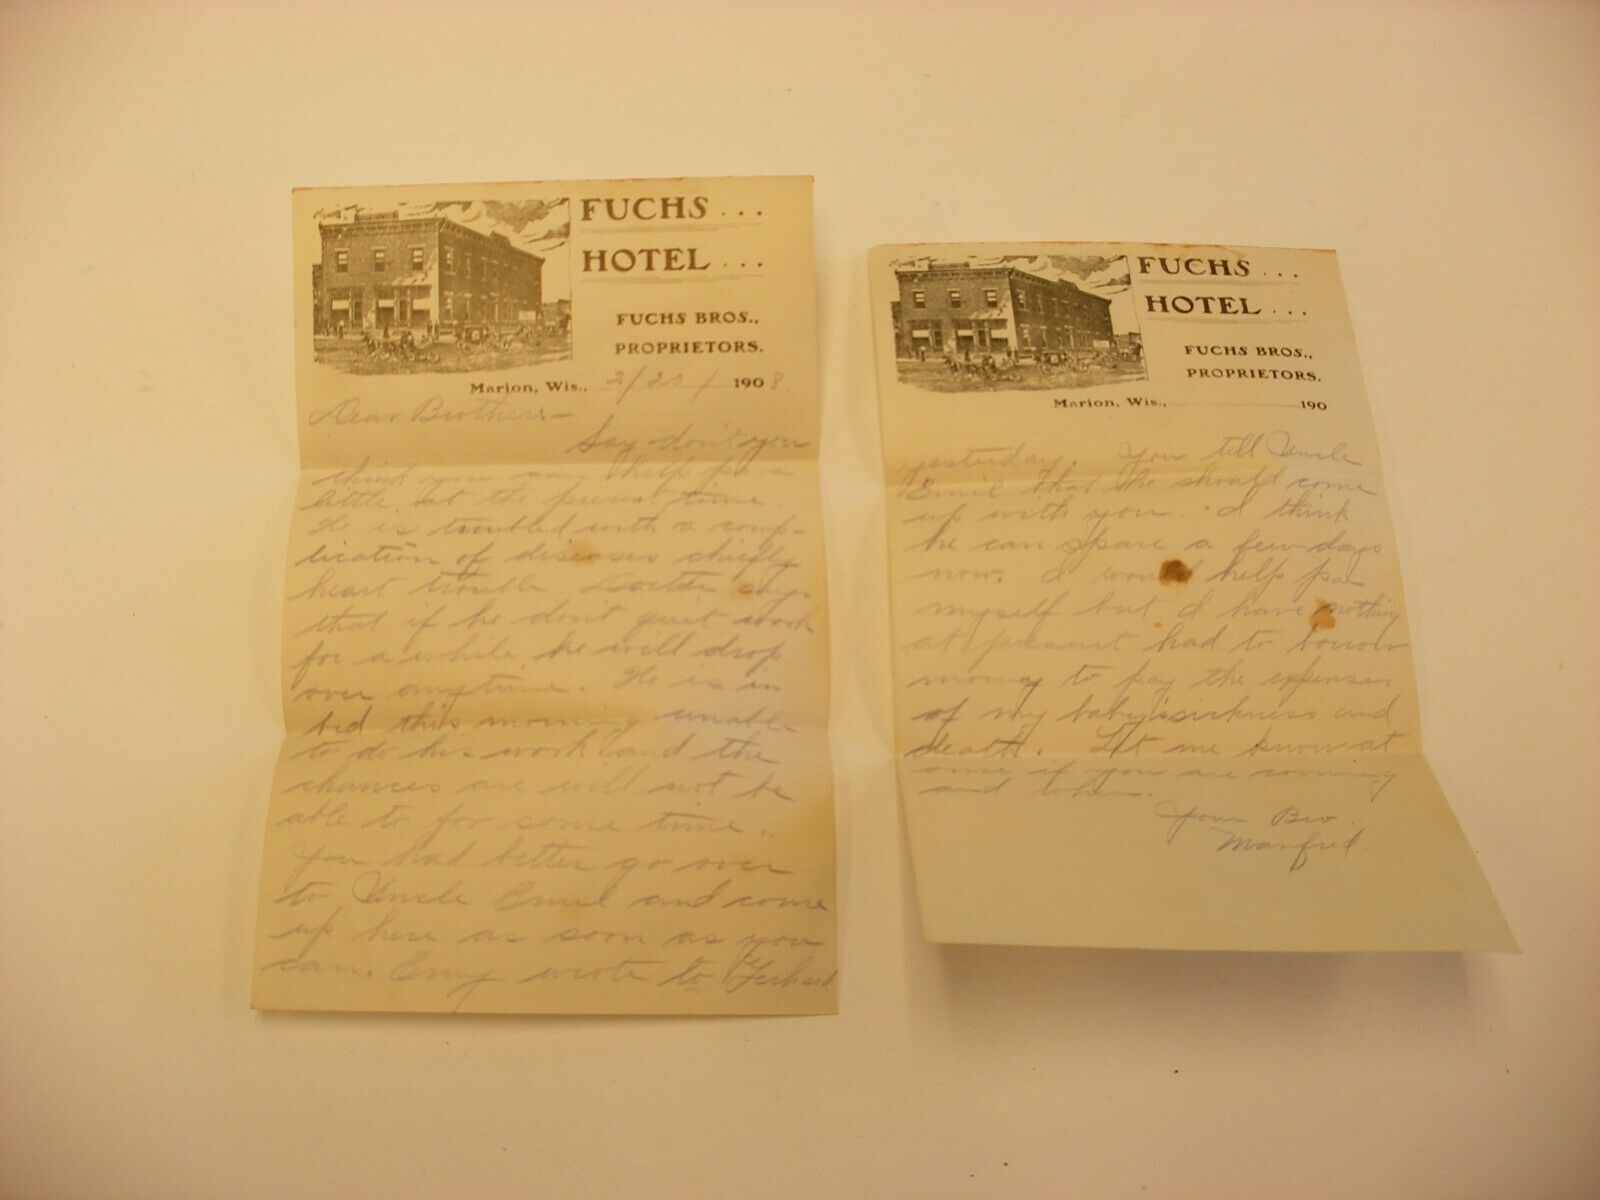 FUCHS ...
HOTEL ...
FUCHS BROS.,
PROPRIETORS.
Marion, Wis., 2/20/ 1908.
Dear Brother:—
Say don't you
think you can help pa a
little at the present time.
He is troubled with a comp-
lication of diseases chiefly
heart trouble. Doctor says
that if he don't quit work
for a while he will drop
over anytime. He is in
bed this morning unable
to do his work and the
chances are will not be
able to for some time.
You had better go over
to Uncle Emil and come
up here as soon as you
can. wrote to Gerhard
FUCHS ...
HOTEL ...
FUCHS BROS.,
PROPRIETORS.
Marion, Wis., 190
yesterday. You tell Uncle
Emil that he should come
up with you. I think
he can spare a few days
now. I would help pa
myself but I have nothing
at present had to borrow
money to pay the expenses
of my baby's sickness and
death. Let me know at
once if you are coming
and when.
Your Bro.
Manfred.